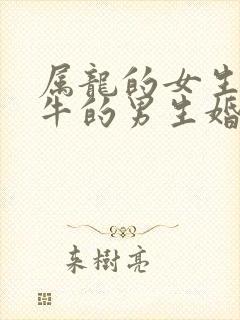 属龍的女生
牛的男生婚
来樹亮